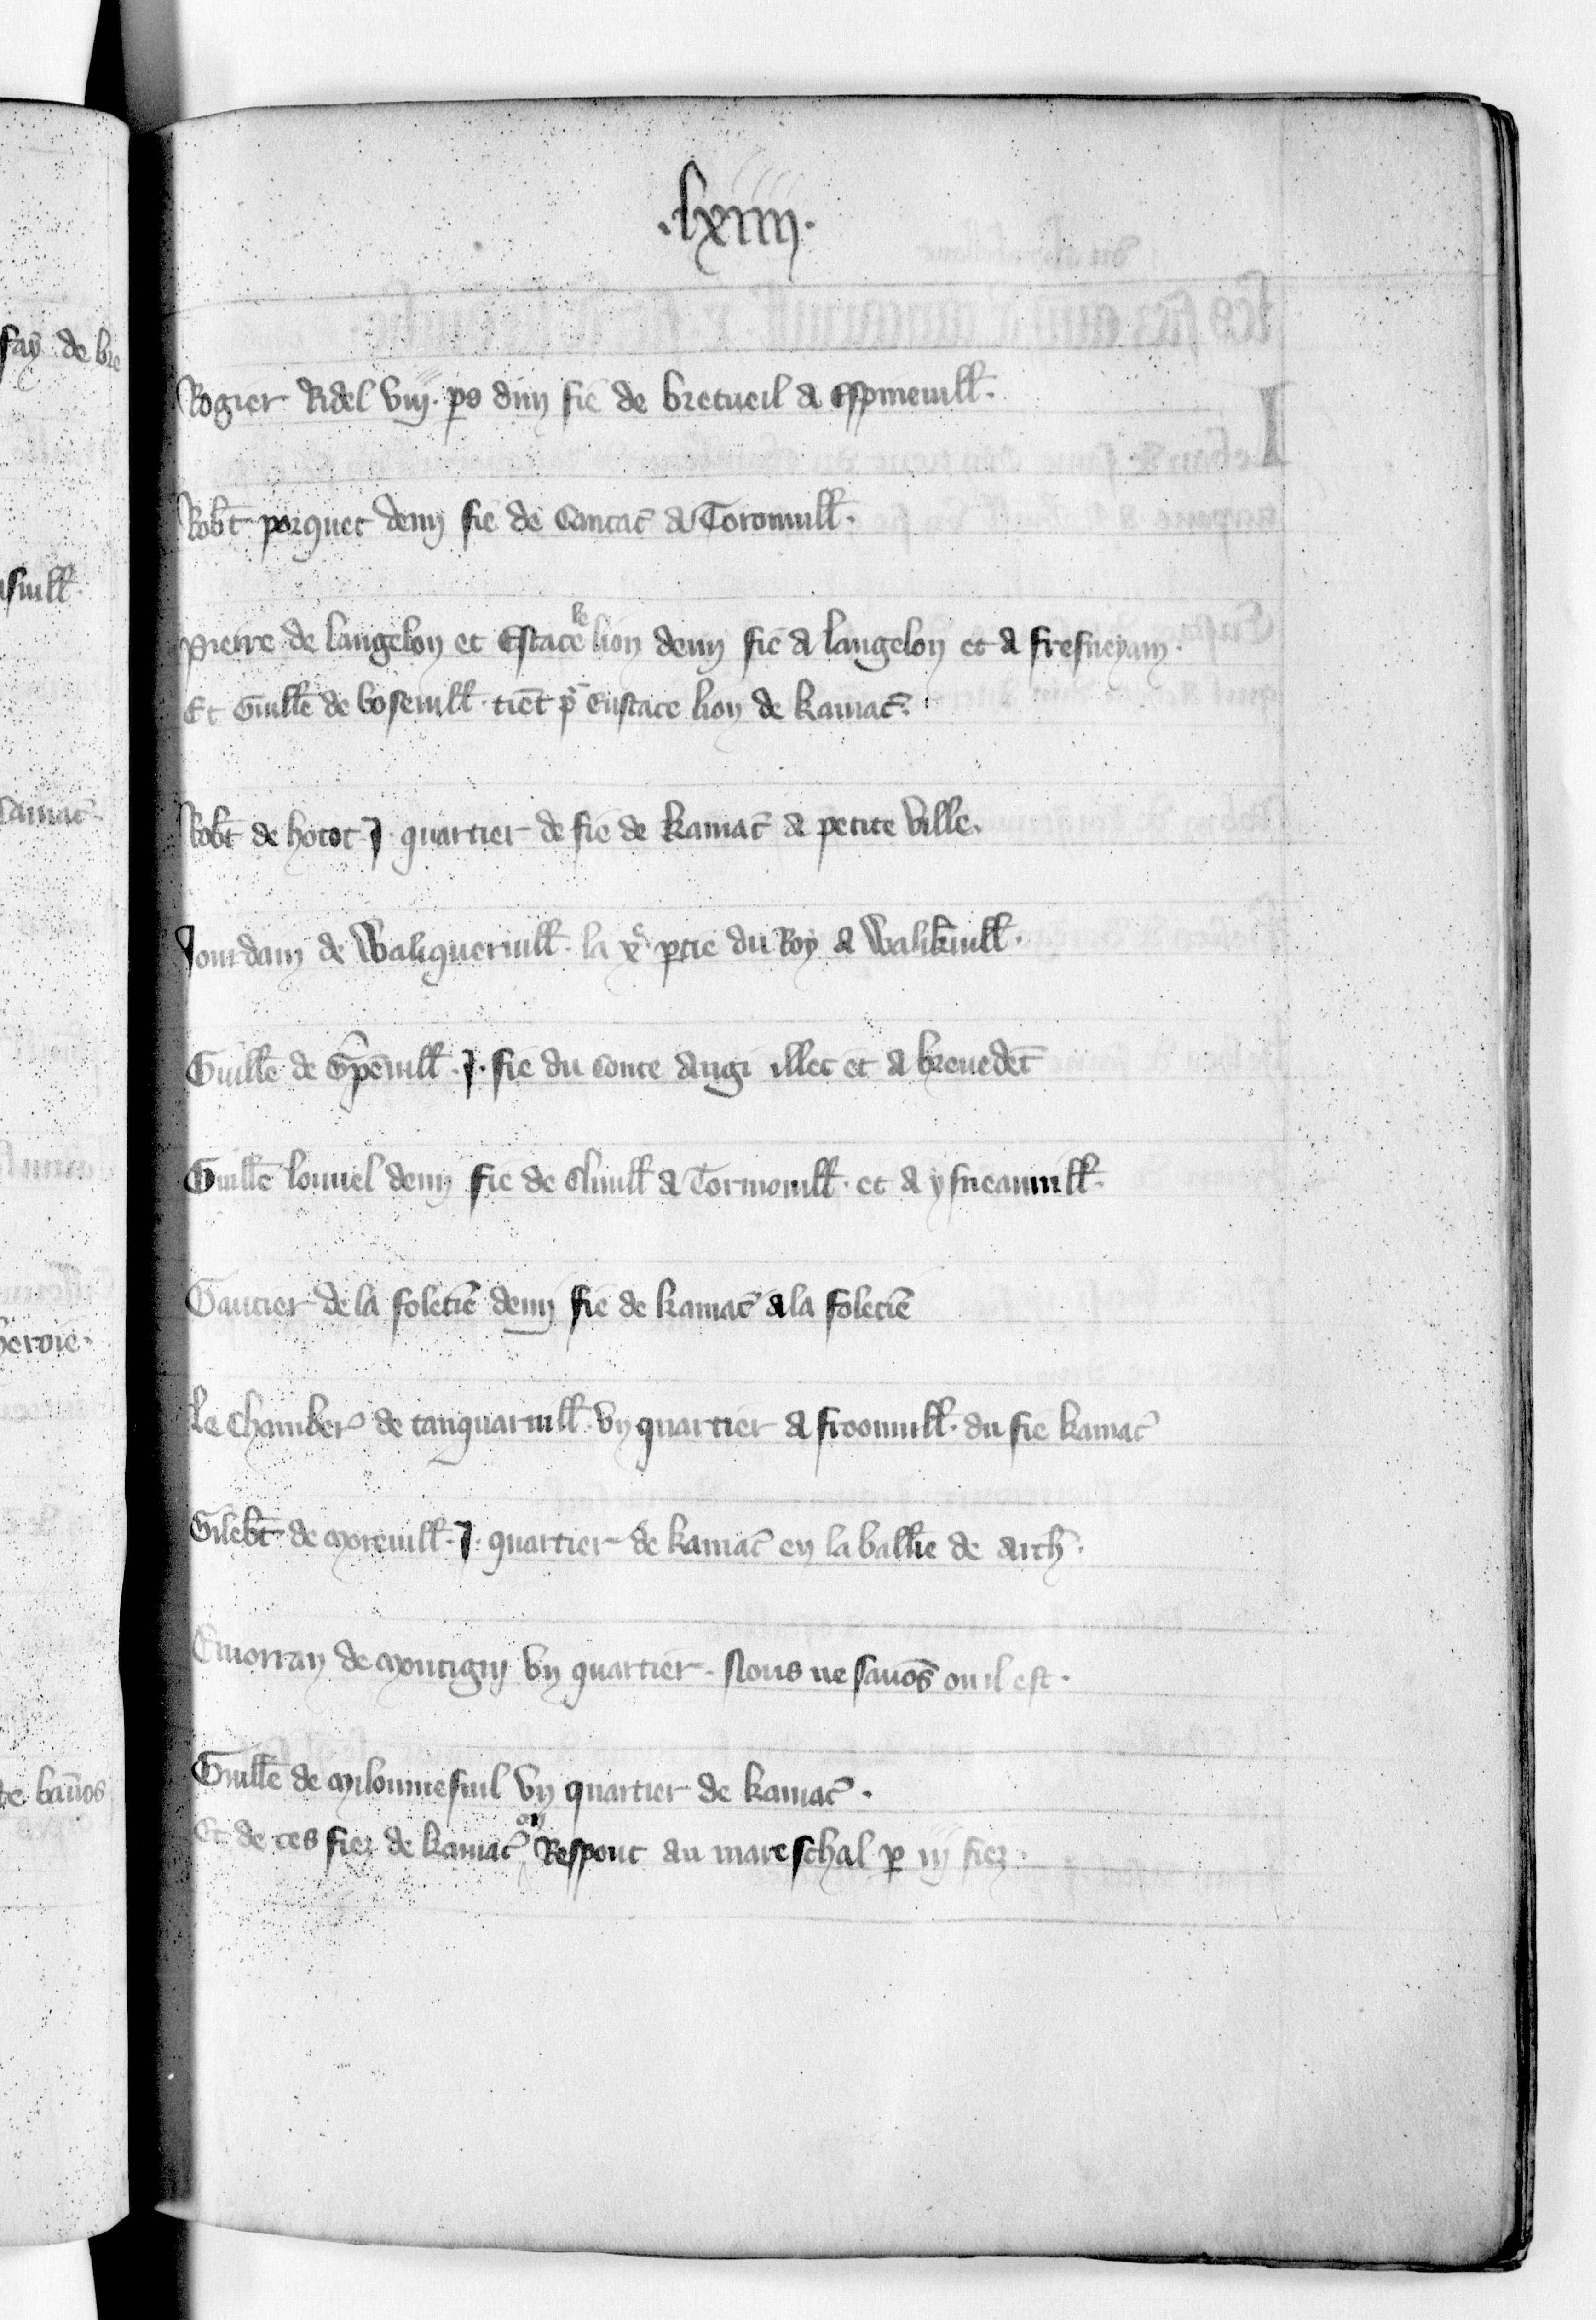 .lxiiii.
Rogier Ridel viij. ps dun fie de bretueil a Espineuill.
Robt porquet demy fie de Camac a Toromuill.
Pierre de langelon et Estace le lion demy fie a langelon et a fresneyam.
Et Guille de boseuill. tiet p Eustace lion de kamac.
Robt de hotot .j. quartier de fie de kamac a petite ville.
Jourdain de Waliqueruill. la xe ptie du Roy a Walikuill.
Guille de Gpeuill .j. fie du conte augi illec et a breuedet
Guille louuel demy fie de Cliuill a Tormouill. et a ysneauuill.
Gautier de la foletie demy fie de kamac a la foletie
Le Chamber de tanquaruill. vn quartier a froomuill. du fie kamac
Gilebt de moreuill. .j. quartier de kamac en la ballie de arch.
de montigny vn quartier. Nous ne sauos ou il est.
Guille de vn quartier de kamac.
Et de ces fiez de kamac on Respont au mareschal p iij fiez.
fay de bre
suill.
camac.
te bauos